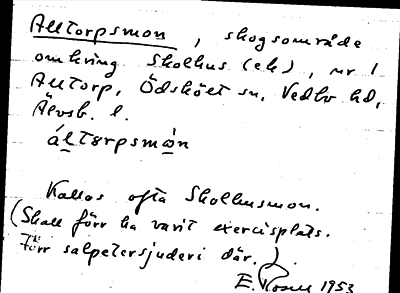 Alltorpsmon, skogsområde
omkring Skolhus (ek), nr 1
Alltorp, Ödskölt sn, Vedbo hd,
Älvsb. l.
áltorpsmȯn
Kallas ofta Skolhusmon.
(Skall förr ha varit exercisplats.
Förr salpetersjuderi där.).
E. 1953